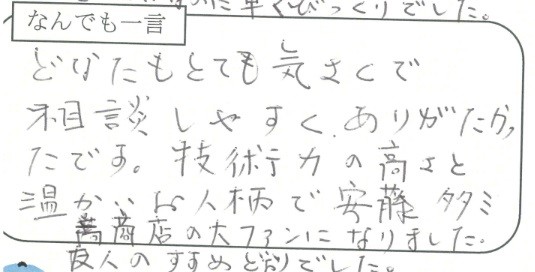 に早くびっくりでした。
なんでも一言
どなたもとても気さくで
相談しやすく、ありがたかっ
たです。技術力の高さと
温かいお人柄で安藤タタミ
商店の大ファンになりました。
友人のすすめどおりでした。